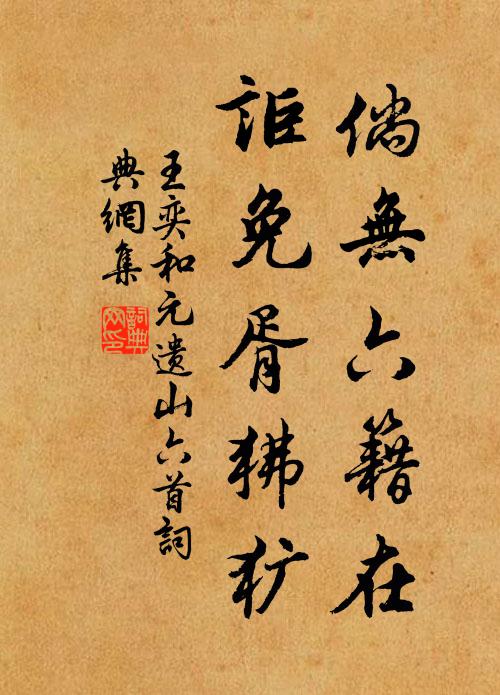 倘無六籍在
詎免胥狒犷
王奕和元遗山六首詞
典網集
詞典
网印